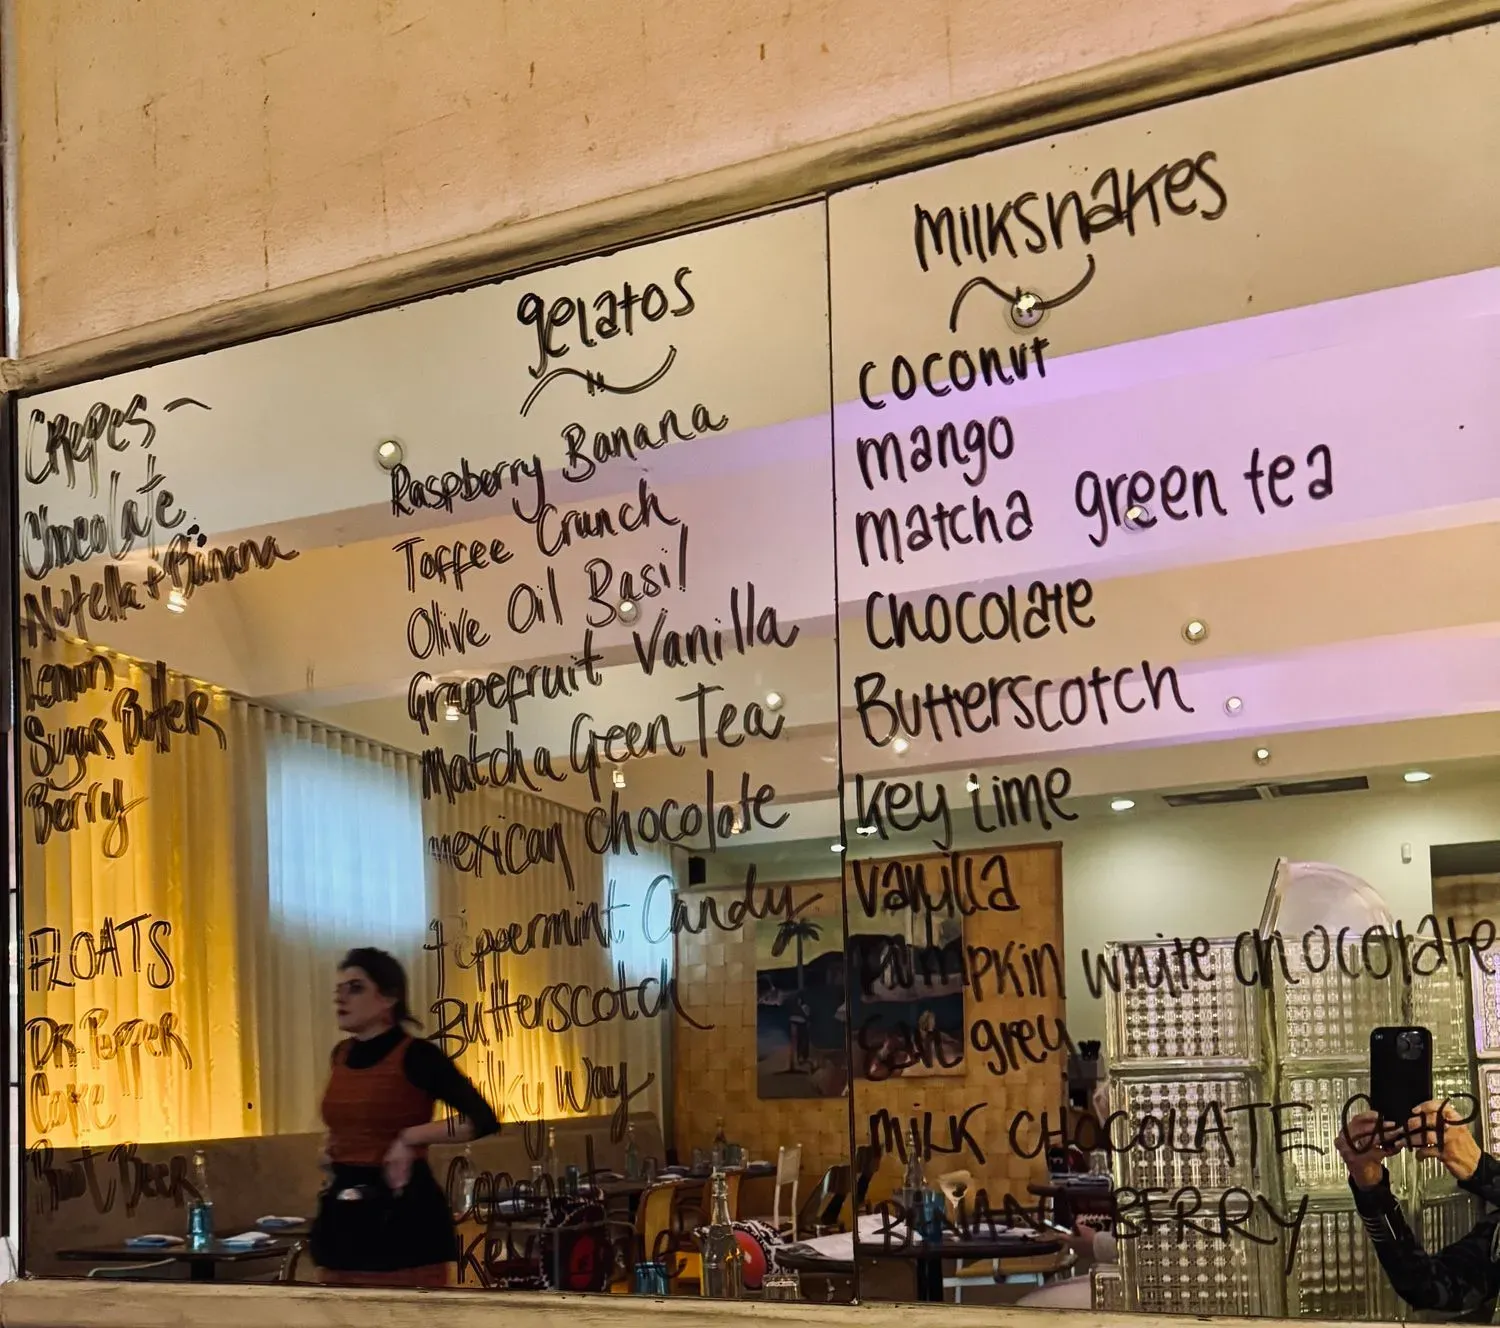 Crepes
Chocolate
Nutella + Banana
Lemon
Sugar Butter
Berry
FLOATS
DR. PEPPER
Coke
Root Beer
gelatos
Raspberry Banana
Toffee Crunch
Olive Oil Basil
Grapefruit Vanilla
Matcha Green Tea
mexican chocolate
Peppermint Candy
Butterscotch
Milky Way
Coconut
Key Lime
milkshakes
coconut
mango
matcha green tea
chocolate
Butterscotch
key lime
vanilla
pumpkin white chocolate
earl grey
MILK CHOCOLATE CHIP
BANANA BERRY